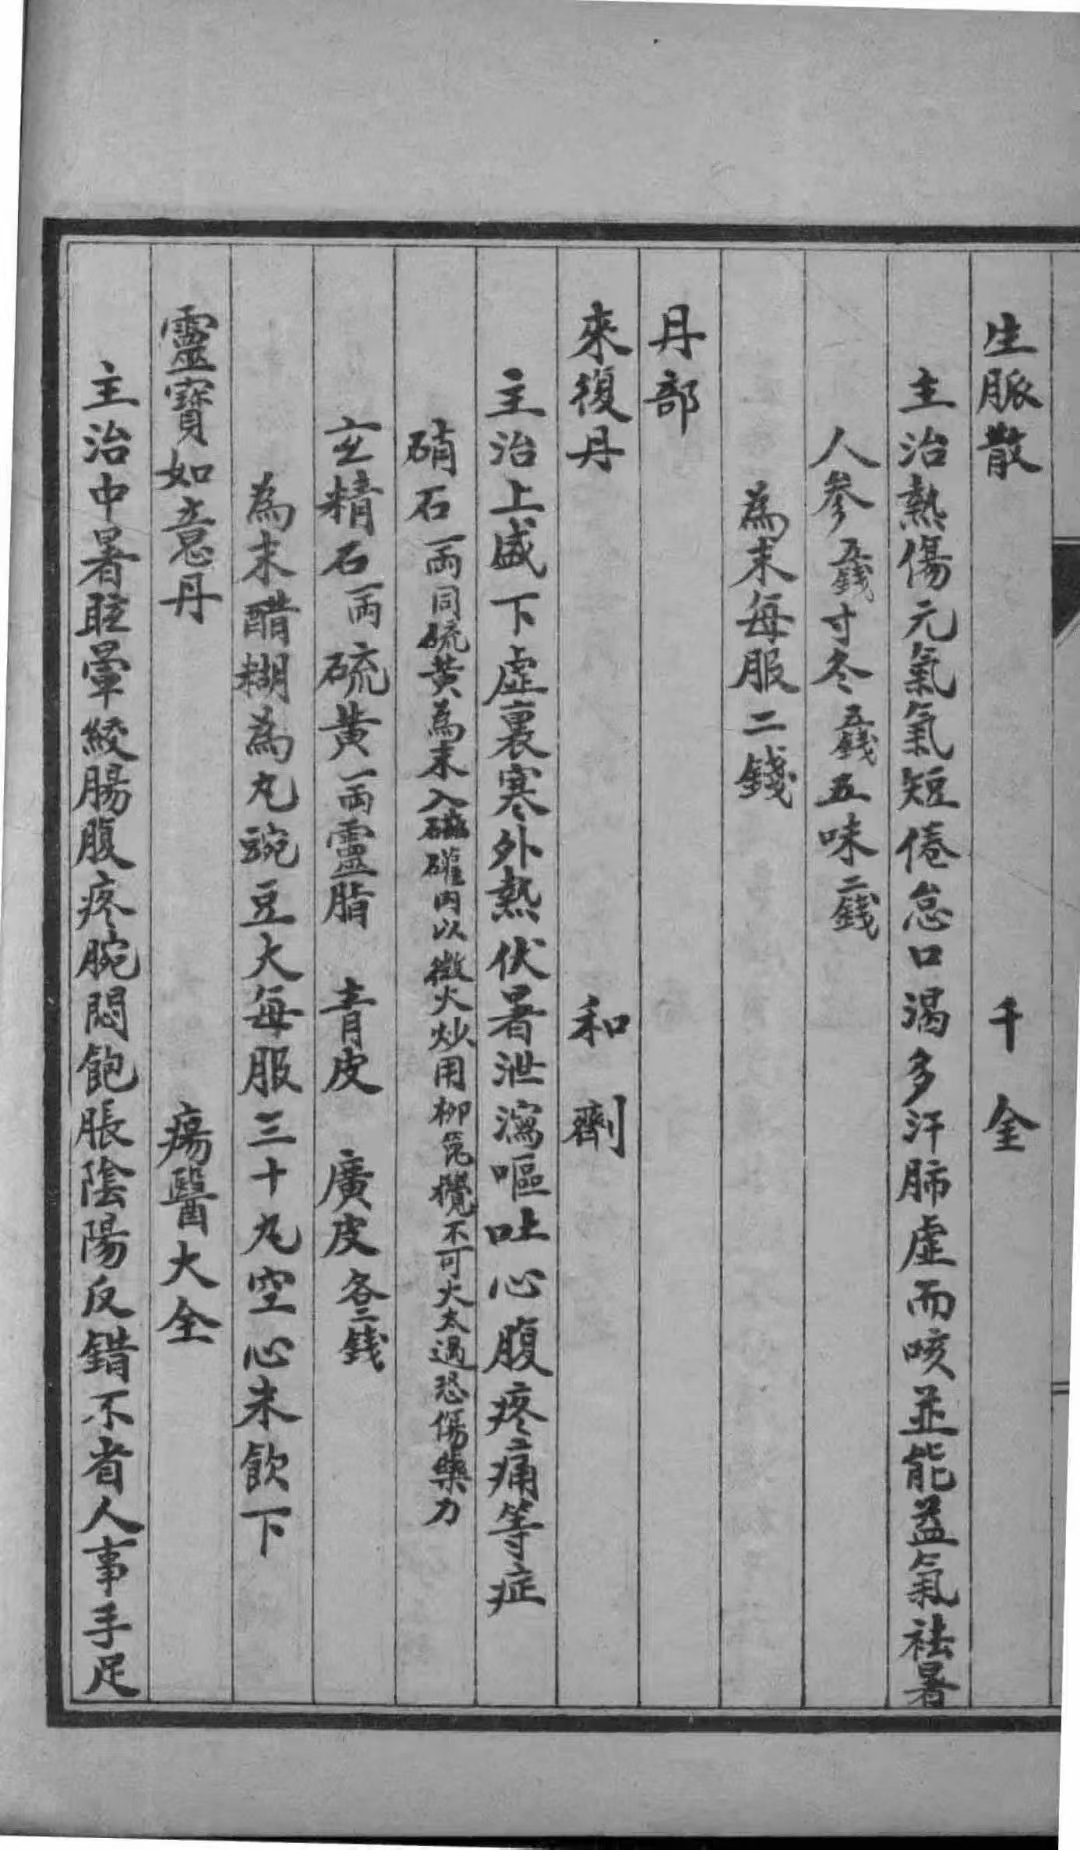 生脈散　千金
主治熱傷元氣氣短倦怠口渴多汗肺虛而咳並能益氣祛暑
人參五錢寸冬五錢五味二錢
為末每服二錢
丹部
來復丹　和劑
主治上盛下虛裏寒外熱伏暑泄瀉嘔吐心腹疼痛等症
硝石一兩同硫黃為末入磁礶內以微火炒用柳篦攪不可火太過恐傷藥力
玄精石一兩硫黃一兩靈脂　青皮　廣皮各二錢
為末醋糊為丸豌豆大每服三十丸空心米飲下
靈寶如意丹　瘍醫大全
主治中暑眩暈絞腸腹疼腕悶飽脹陰陽反錯不省人事手足